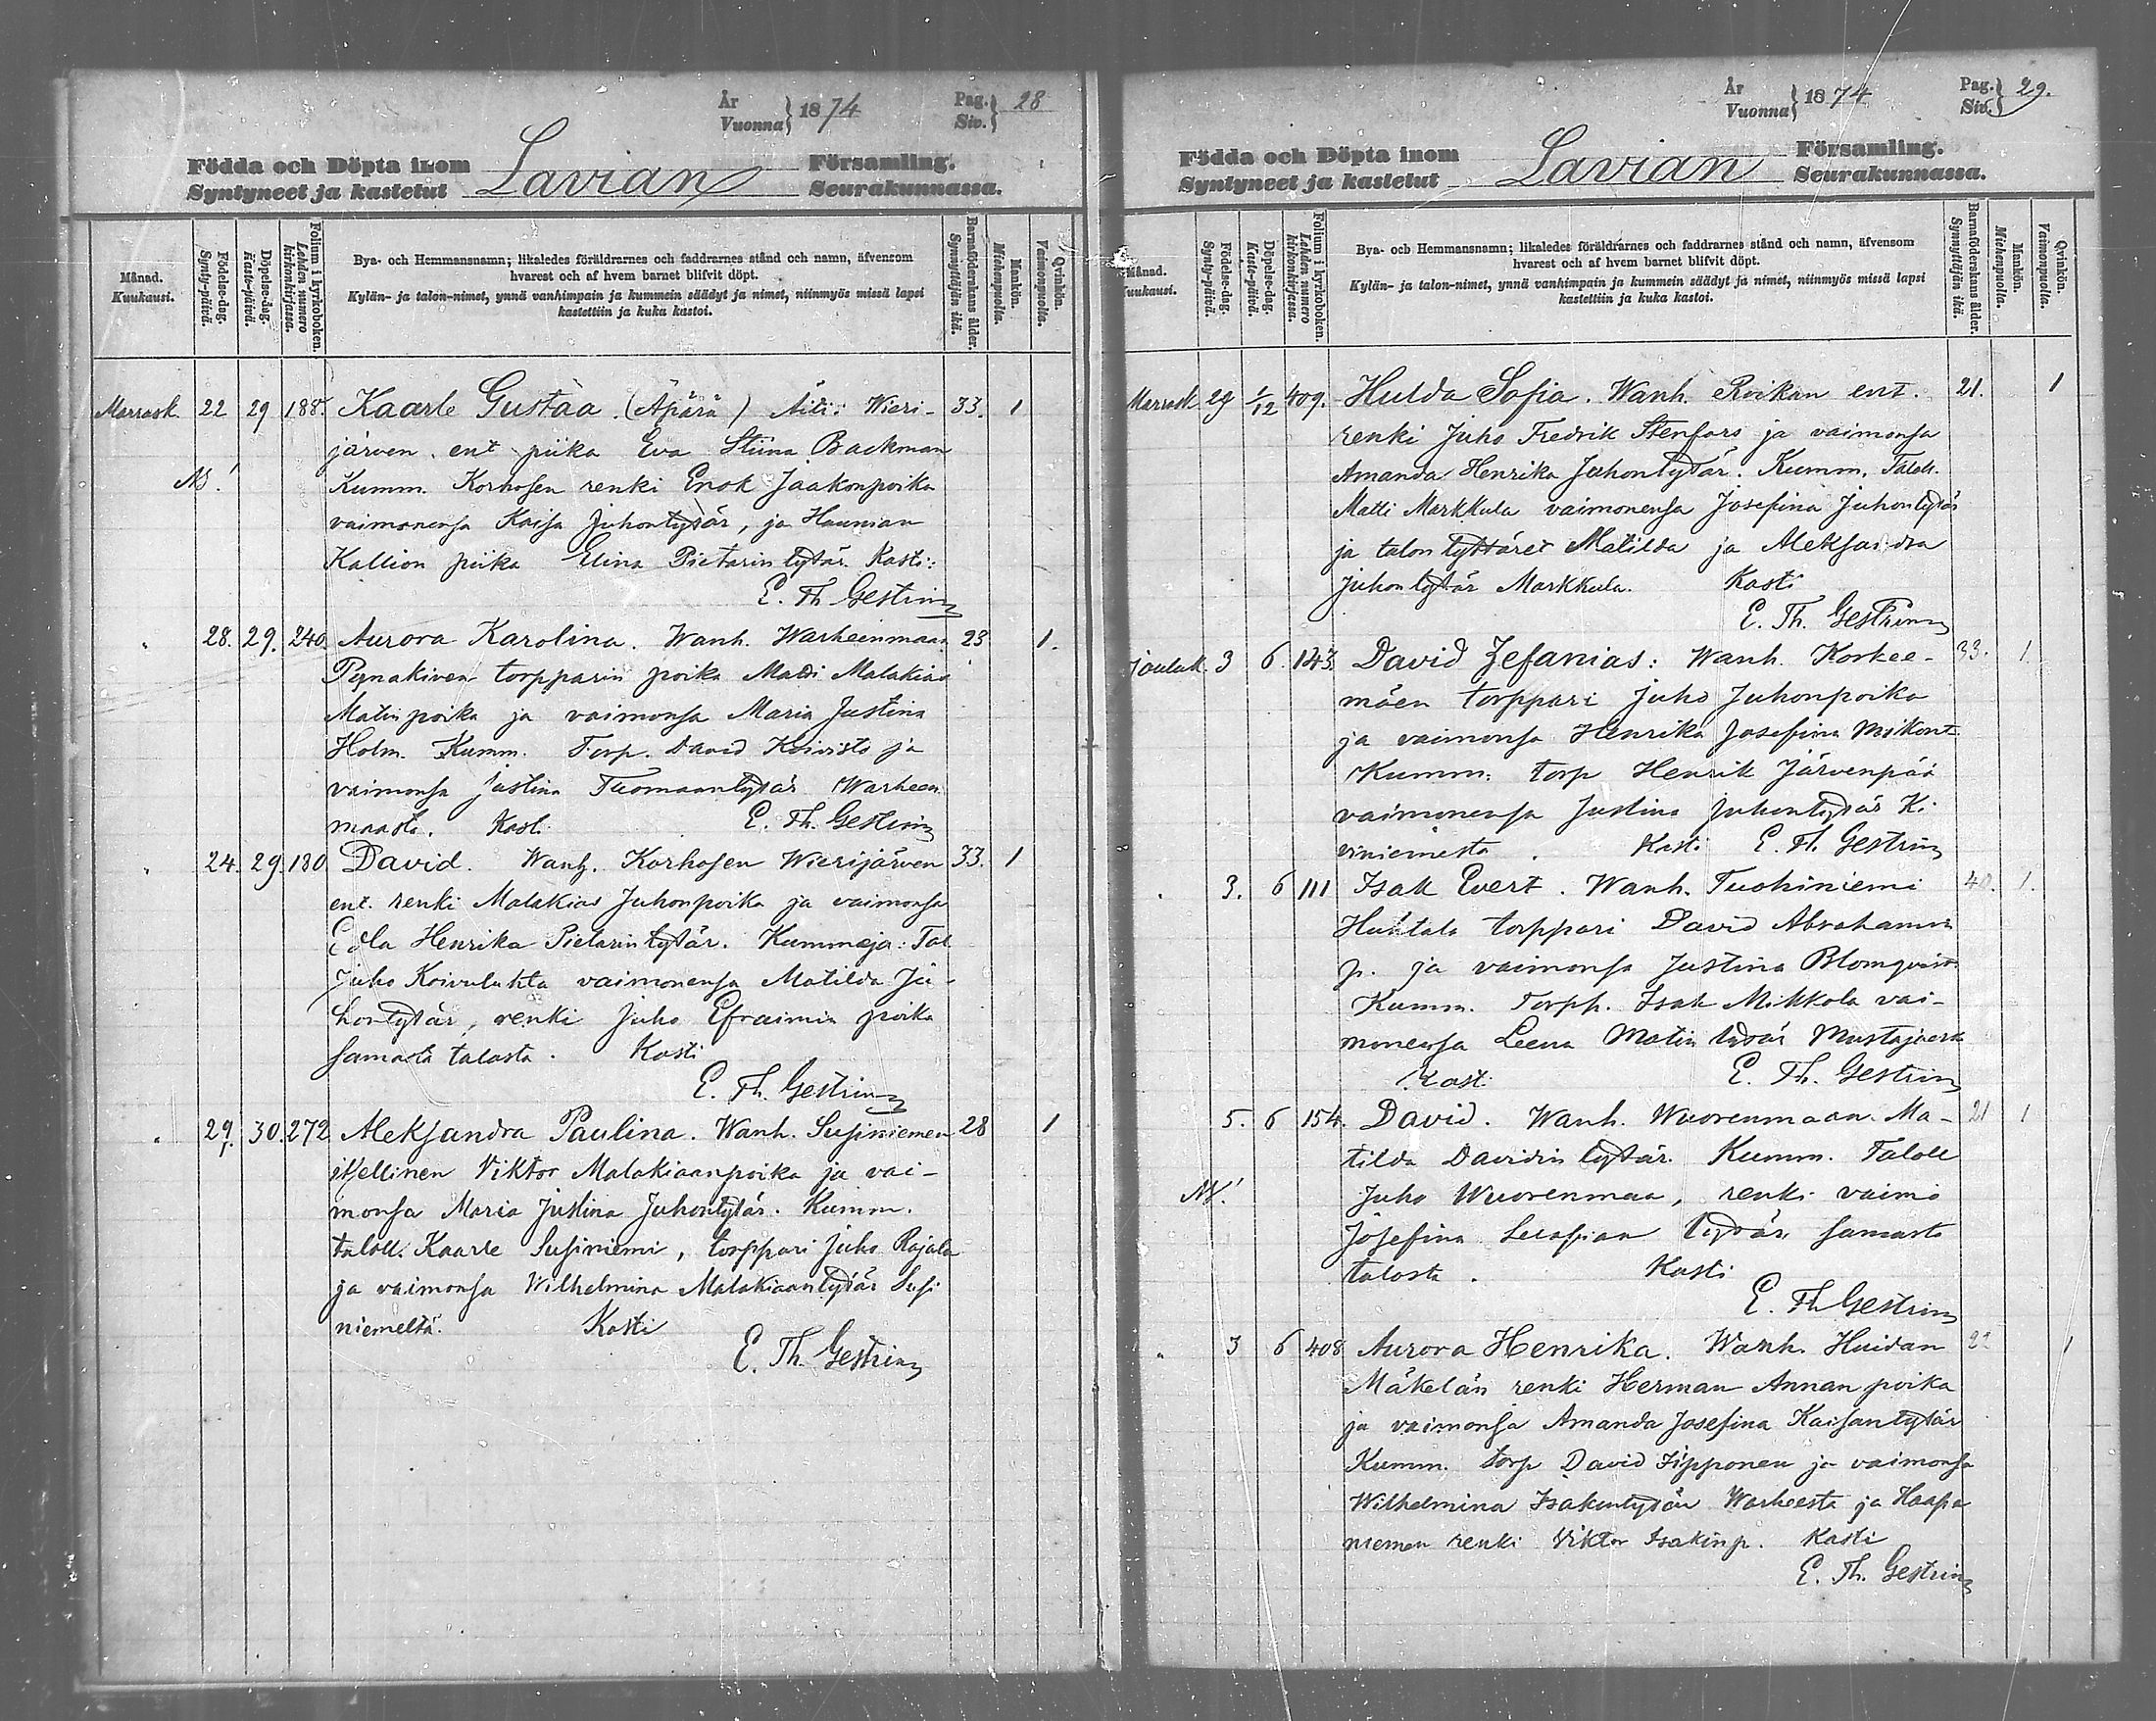 År
Vuonna } 1874 Pag. Siv. } 28
Födda och Döpta inom Församling.
Syntyneet ja kastetut Lavian Seurakunnassa.
Månad. Kuukausi.
Födelse-dag. Synty-päivä.
Döpelse-dag. Kaste-päivä.
Folium i kyrkoboken. Lehden numero kirkonkirjassa.
Bya- och Hemmansnamn; likaledes föräldrarnes och faddrarnes stånd och namn, äfvensom
hvarest och af hvem barnet blifvit döpt.
Kylän- ja talon-nimet, ynnä vanhimpain ja kummein säädyt ja nimet, niinmyös missä lapsi
kastettiin ja kuka kastoi.
Barnaföderskans ålder. Synnyttäjän ikä.
Mankön. Miehenpuolia.
Qvinkön. Vaimonpuolia.
Marrask. 22 29 188. Kaarle Gustaa. (Äpärä) Äiti: Wieri- 33. 1
järven ent piika Eva Stiina Backman
Kumm. Korhosen renki Enok Jaakonpoika
vaimonensa Kaisa Juhontytär, ja Haunian
Kallion piika Elina Pietarintytär. Kasti:
E. Th. Gestrin
" 28. 29. 240. Aurora Karolina. Wanh. Warheenmaan 23 1.
torpparin poika Matti Malakias
Matinpoika ja vaimonsa Maria Justina
Holm. Kumm. Torp. David Koivisto ja
vaimonsa Justina Tuomaantytär Warheen
maasta. Kasti E. Th. Gestrin
" 24. 29. 180 David. Wanh. Korhosen Wierijärven 33. 1
ent. renki Malakias Juhonpoika ja vaimonsa
Edla Henrika Pietarintytär. Kummeja: Tal
Juho Koivulahta vaimonensa Matilda Ju-
hontytär, renki Juho Efraimin poika
samasta talosta. Kasti
E. Th. Gestrin
" 29. 30. 272 Aleksandra Paulina. Wanh. Susiniemen 28 1
itsellinen Viktor Malakiaanpoika ja vai-
monsa Maria Justina Juhontytär. Kumm.
taloll. Kaarle Susiniemi, torppari Juho Rajala
ja vaimonsa Wilhelmina Malakiaantytär Susi
niemeltä. Kasti
E. Th. Gestrin
År
Vuonna } 1874 Pag. Siv. } 29.
Födda och Döpta inom Församling.
Syntyneet ja kastetut Lavian Seurakunnassa.
Månad. Kuukausi.
Födelse-dag. Synty-päivä.
Döpelse-dag. Kaste-päivä.
Folium i kyrkoboken. Lehden numero kirkonkirjassa.
Bya- och Hemmansnamn; likaledes föräldrarnes och faddrarnes stånd och namn, äfvensom
hvarest och af hvem barnet blifvit döpt.
Kylän- ja talon-nimet, ynnä vanhimpain ja kummein säädyt ja nimet, niinmyös missä lapsi
kastettiin ja kuka kastoi.
Barnaföderskans ålder. Synnyttäjän ikä.
Mankön. Miehenpuolia.
Qvinkön. Vaimonpuolia.
Marrask 29 1/12 409. Hulda Sofia. Wanh. Roikan ent. 21. 1
renki Juho Fredrik Stenfors ja vaimonsa
Amanda Henrika Juhontytär. Kumm. Taloll.
Matti Markkula vaimonensa Josefina Juhontytär
ja talon tyttäret Matilda ja Aleksandra
Juhontytär Markkula. Kasti
E. Th. Gestrin
Jouluk. 3 6. 143 David Zefanias: Wanh. Korkee- 33. 1.
mäen torppari Juho Juhonpoika
ja vaimonsa Henrika Josefina Mikont.
Kumm: torp Henrik Järvenpää
vaimonensa Justina Juhontytär Ki-
viniemestä. Kasti E. Th. Gestrin
" 3. 6 111 Isak Evert. Wanh. Tuohiniemi 40. 1.
Huhtala torppari David Abrahamin
p. ja vaimonsa Justina Blomqvist
Kumm. Torpp. Isak Mikkola vai-
monensa Leena Matin tytär
Kasti E. Th. Gestrin
5. 6 154. David. Wanh. Wuorenmaan Ma- 21 1
tilda Davidin tytär. Kumm. Taloll
Juho Wuorenmaa, renki vaimo
Josefina tytär samasta
talosta. Kasti
E. Th. Gestrin
" 3 6 408 Aurora Henrika. Wanh. Huidan 1
Mäkelän renki Herman Annan poika
ja vaimonsa Amanda Josefina Kaisantytär
Kumm. torp David Sipponen ja vaimonsa
Wilhelmina Isakintytär Warheesta ja Haapa
niemen renki Viktor Isakinp. Kasti
E. Th. Gestrin